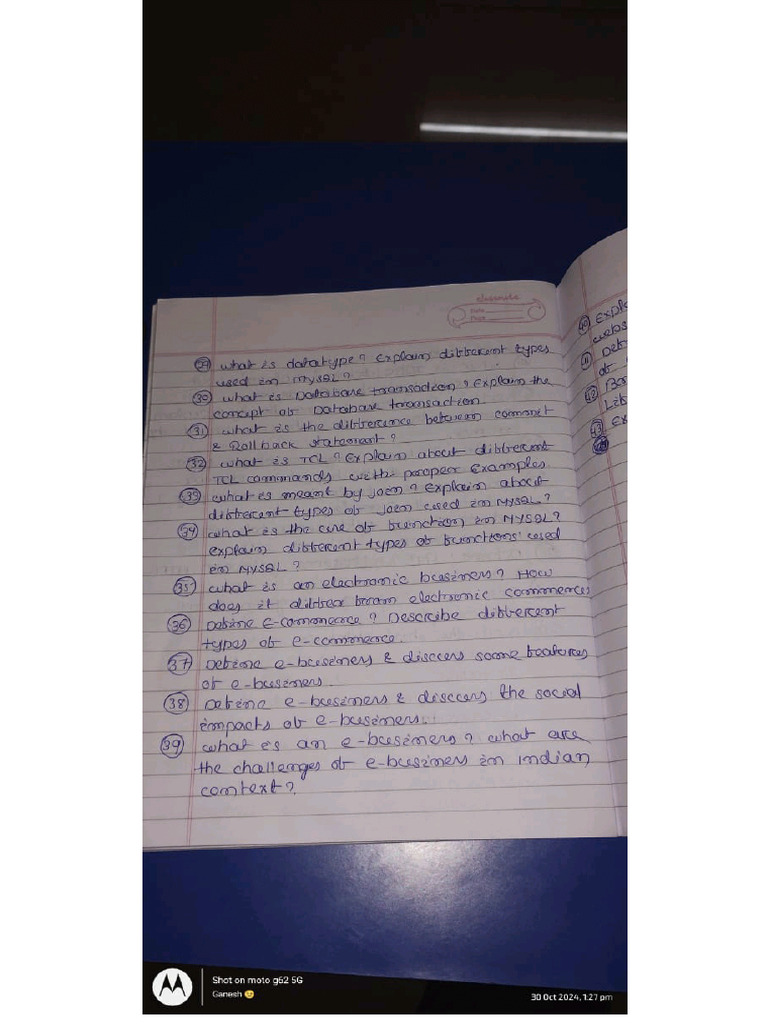 classmate
Date
Page
29 What is datatype? Explain different types
used in MySQL?
30 What is Database transaction? Explain the
concept of Database transaction.
31 What is the difference between commit
& Rollback statement?
32 What is TCL? Explain about different
TCL commands with proper examples.
33 What is meant by join? Explain about
different types of join used in MySQL?
34 What is the use of function in MySQL?
explain different types of functions used
in MySQL?
35 What is an electronic business? How
does it differ from electronic commences
36 Define E-commerce? Describe different
types of e-commerce.
37 Define e-business & discuss some features
of e-business.
38 Define e-business & discuss the social
impacts of e-business.
39 What is an e-business? What are
the challenges of e-business in Indian
context?
40 Expla
webs
41 Def
of
42
Lib
43 Ex
Shot on moto g62 5G
Ganesh 😉
30 Oct 2024, 1:27 pm